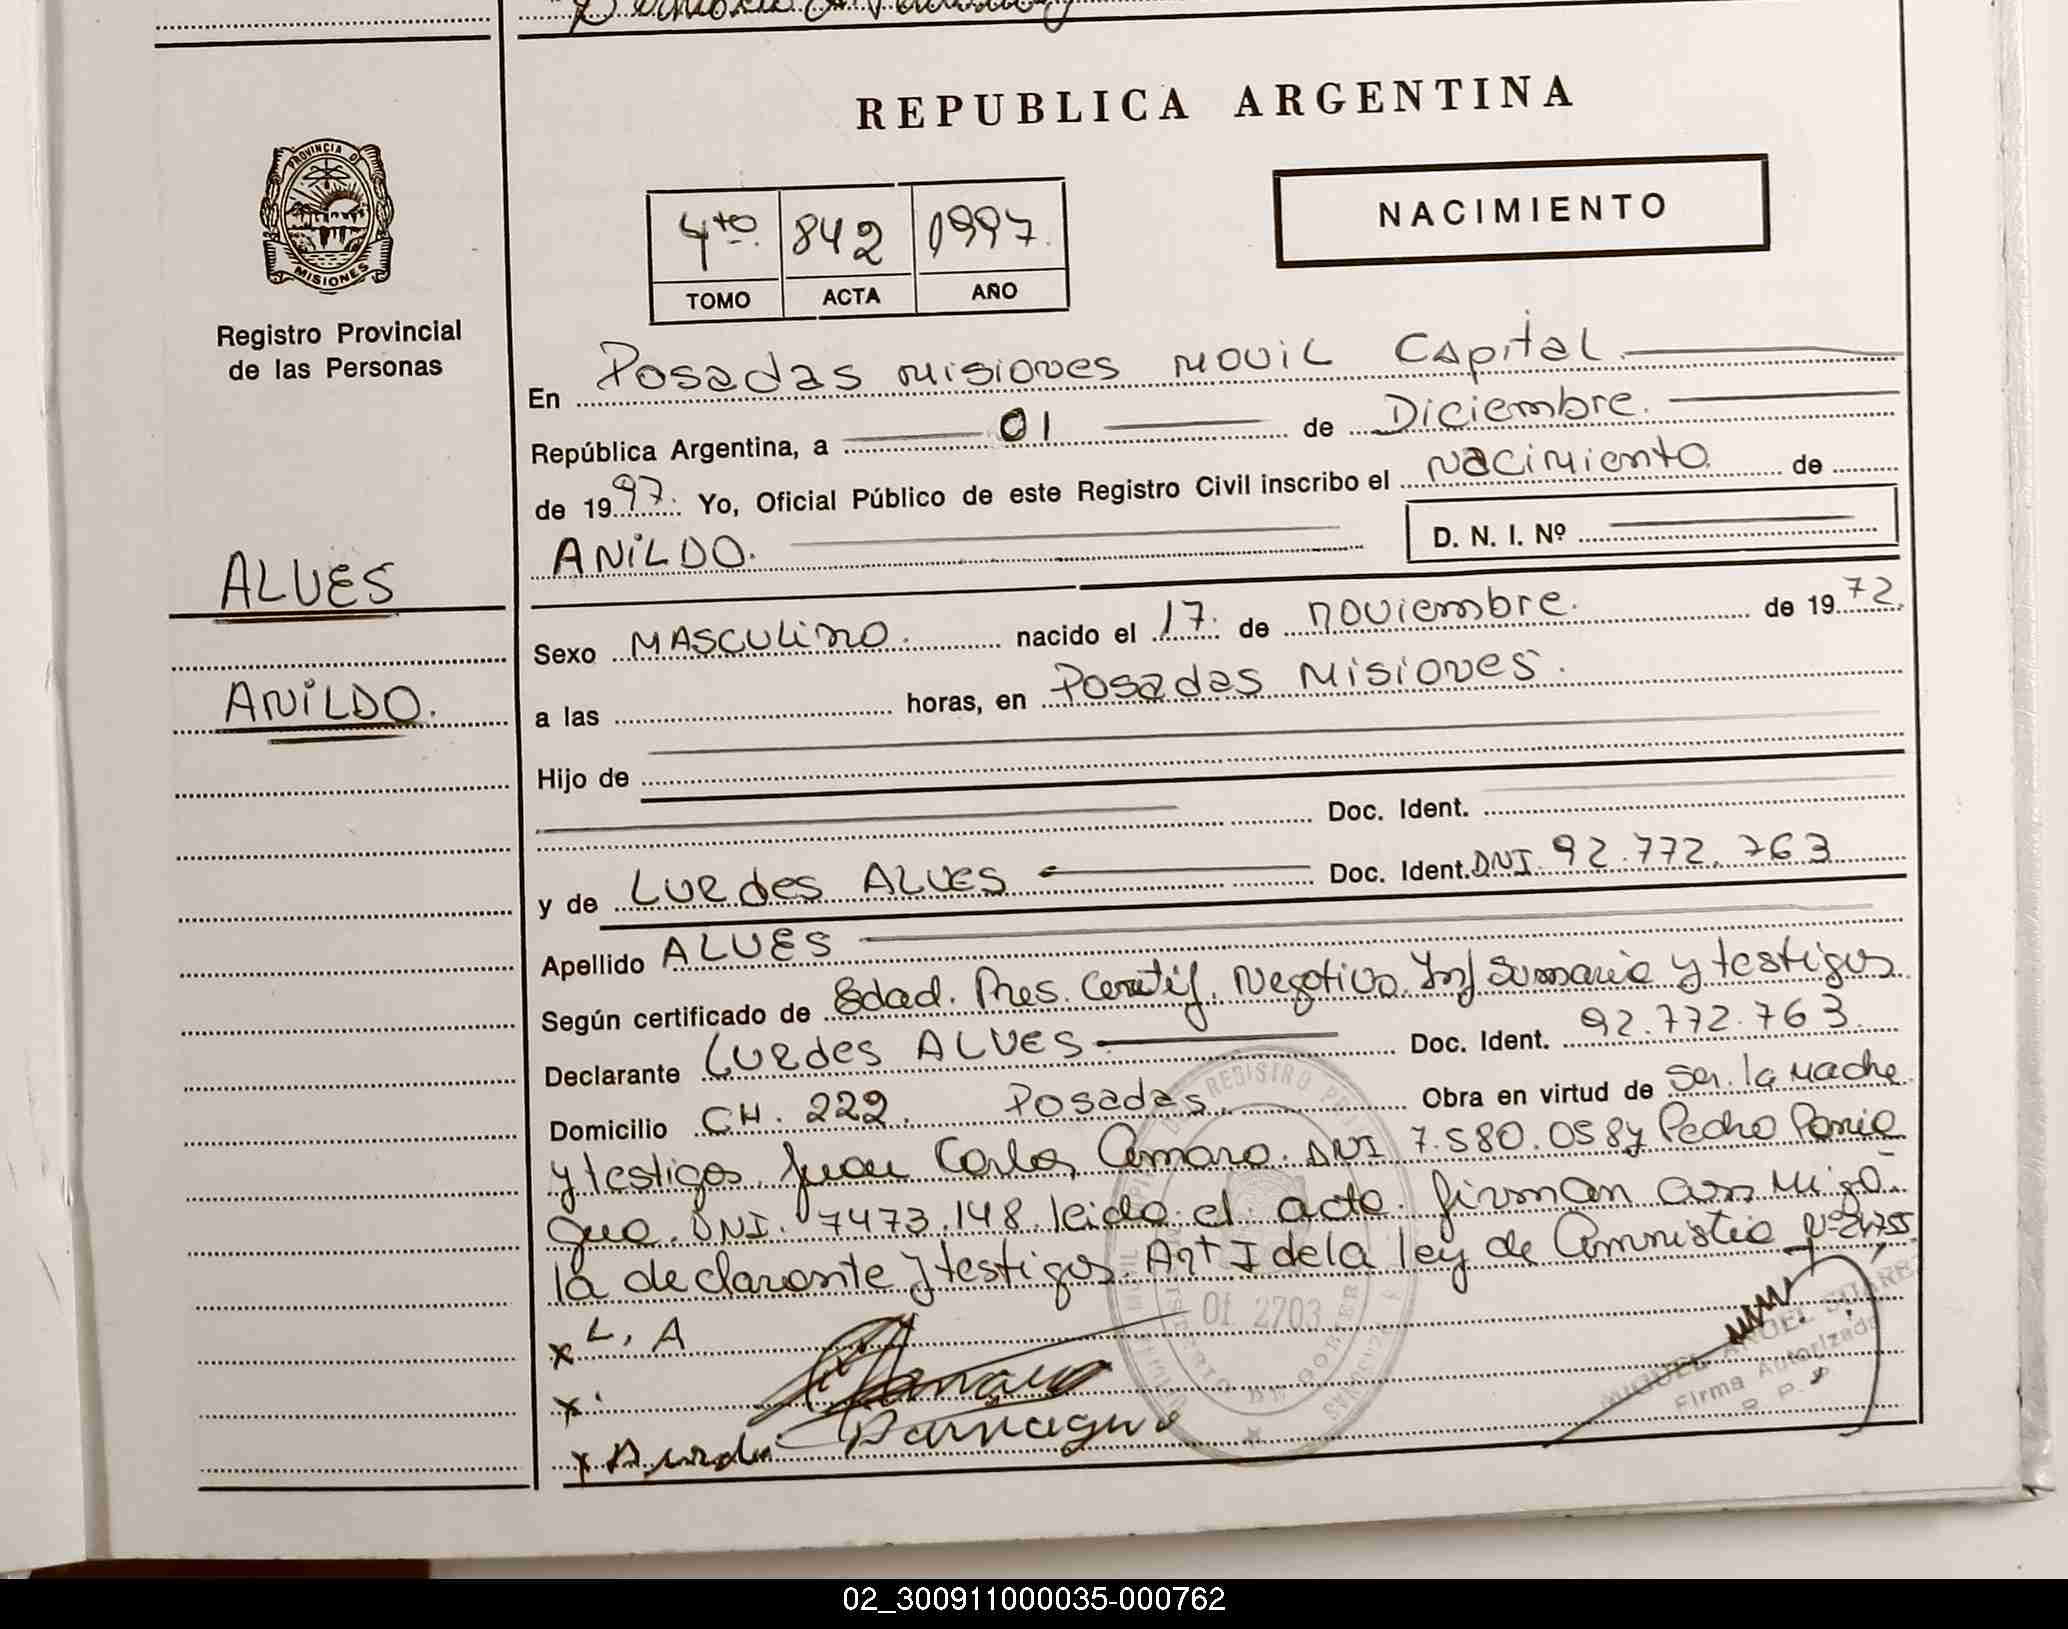 REPUBLICA ARGENTINA
PROVINCIA DE
MISIONES
Registro Provincial
de las Personas
4to 842 1997
TOMO ACTA AÑO
NACIMIENTO
En Posadas Misiones Movil Capital
República Argentina, a 01 de Diciembre.
de 1997. Yo, Oficial Público de este Registro Civil inscribo el Nacimiento de
ANILDO. D. N. I. Nº
ALVES
ANILDO.
Sexo MASCULINO. nacido el 17 de noviembre. de 1972.
a las horas, en Posadas Misiones.
Hijo de
Doc. Ident.
y de LURdes ALVES Doc. Ident. DNI. 92.772.763
Apellido ALVES
Según certificado de Edad. Pres. Certif. Negativo. Inf Sumaria y testigos
Declarante LURdes ALVES Doc. Ident. 92.772.763.
Domicilio CH. 222. Posadas. Obra en virtud de Ser. la Madre
y testigos Juan Carlos Amaro. DNI 7.580.058 y Pedro
DNI. 7473.148 leido el acta firman
la declarante y testigos. Art I de la ley de Amnistia Nº 24755
x L. A
x.
x
Of. 2703
MIGUEL ANGEL
Firma Autorizada
R. P. P.
02_300911000035-000762